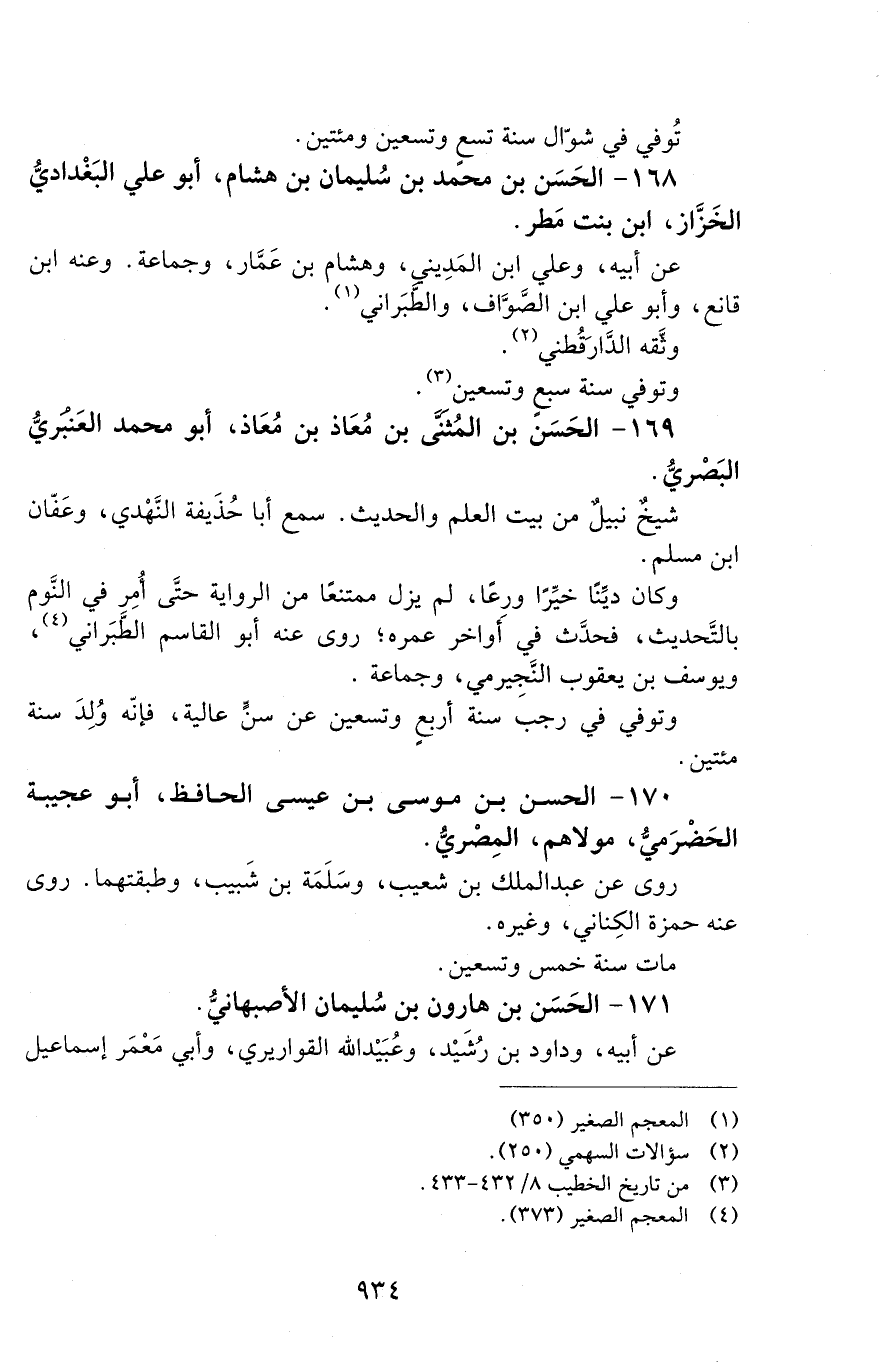 تُوفي في شوّال سنة تسعٍ وتسعين ومئتين.
١٦٨- الحَسَن بن محمد بن سُليمان بن هشام، أبو علي البَغْداديُّ
الخَزَّاز، ابن بنت مَطر.
عن أبيه، وعلي ابن المَدِيني، وهشام بن عَمَّار، وجماعة. وعنه ابن
قانع، وأبو علي ابن الصَّوَّاف، والطَّبَراني(١).
وثَّقه الدَّارَقُطني(٢).
وتوفي سنة سبعٍ وتسعين(٣).
١٦٩- الحَسَن بن المُثنَّى بن مُعَاذ بن مُعَاذ، أبو محمد العَنْبَريُّ
البَصْريُّ.
شيخٌ نبيلٌ من بيت العلم والحديث. سمع أبا حُذَيفة النَّهْدي، وعَفّان
ابن مسلم.
وكان ديِّنًا خيِّرًا ورِعًا، لم يزل ممتنعًا من الرواية حتَّى أُمِر في النَّوم
بالتَّحديث، فحدَّث في أواخر عمره؛ روى عنه أبو القاسم الطَّبَراني(٤)،
ويوسف بن يعقوب النَّجِيرمي، وجماعة .
وتوفي في رجب سنة أربعٍ وتسعين عن سنٍّ عالية، فإنّه وُلِدَ سنة
مئتين.
١٧٠- الحسن بن موسى بن عيسى الحافظ، أبو عجيبة
الحَضْرَميُّ، مولاهم، المِصْريُّ.
روى عن عبدالملك بن شعيب، وسَلَمَة بن شَبيب، وطبقتهما. روى
عنه حمزة الكِناني، وغيره.
مات سنة خمس وتسعين.
١٧١- الحَسَن بن هارون بن سُليمان الأصبهانيُّ.
عن أبيه، وداود بن رُشَيْد، وعُبَيْدالله القواريري، وأبي مَعْمَر إسماعيل
(١) المعجم الصغير (٣٥٠)
(٢) سؤالات السهمي (٢٥٠).
(٣) من تاريخ الخطيب ٨/ ٤٣٢-٤٣٣ .
(٤) المعجم الصغير (٣٧٣).
٩٣٤